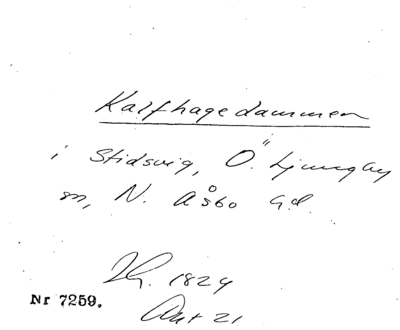 Kalfhagedammen
i Stidsvig, Ö. Ljungby
sn, N. Åsbo hd.
1829
Nr 7259.
Akt 21